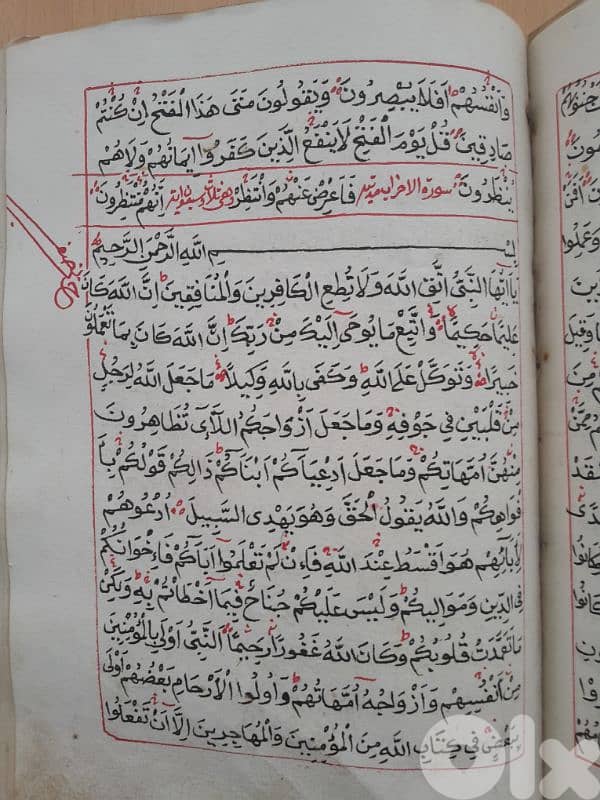 وَاَنْفُسُهُمْ اَفَلَا يُبْصِرُونَ وَيَقُولُونَ مَتَى هَذَا الْفَتْحُ اِنْ كُنْتُمْ
صَادِقِينَ قُلْ يَوْمَ الْفَتْحِ لَا يَنْفَعُ الَّذِينَ كَفَرُوا اِيمَانُهُمْ وَلَا هُمْ
يُنْظَرُونَ فَاَعْرِضْ عَنْهُمْ وَانْتَظِرْ اِنَّهُمْ مُنْتَظِرُونَ
سورة الاحزاب مدنية وهي ثلاث وسبعون اية
بِسْمِ اللَّهِ الرَّحْمَنِ الرَّحِيمِ
يَا اَيُّهَا النَّبِيُّ اتَّقِ اللَّهَ وَلَا تُطِعِ الْكَافِرِينَ وَالْمُنَافِقِينَ اِنَّ اللَّهَ كَانَ
عَلِيمًا حَكِيمًا وَاتَّبِعْ مَا يُوحَى اِلَيْكَ مِنْ رَبِّكَ اِنَّ اللَّهَ كَانَ بِمَا تَعْمَلُونَ
خَبِيرًا وَتَوَكَّلْ عَلَى اللَّهِ وَكَفَى بِاللَّهِ وَكِيلًا مَا جَعَلَ اللَّهُ لِرَجُلٍ
مِنْ قَلْبَيْنِ فِي جَوْفِهِ وَمَا جَعَلَ اَزْوَاجَكُمُ اللَّائِ تُظَاهِرُونَ
مِنْهُنَّ اُمَّهَاتِكُمْ وَمَا جَعَلَ اَدْعِيَاءَكُمْ اَبْنَاءَكُمْ ذَالِكُمْ قَوْلُكُمْ بِاَ
فْوَاهِكُمْ وَاللَّهُ يَقُولُ الْحَقَّ وَهُوَ يَهْدِي السَّبِيلَ اُدْعُوهُمْ
لِاَبَائِهِمْ هُوَ اَقْسَطُ عِنْدَ اللَّهِ فَاِنْ لَمْ تَعْلَمُوا اَبَاءَهُمْ فَاِخْوَانُكُمْ
فِي الدِّينِ وَمَوَالِيكُمْ وَلَيْسَ عَلَيْكُمْ جُنَاحٌ فِيمَا اَخْطَاْتُمْ بِهِ وَلَكِنْ
مَا تَعَمَّدَتْ قُلُوبُكُمْ وَكَانَ اللَّهُ غَفُورًا رَحِيمًا اَلنَّبِيُّ اَوْلَى بِالْمُؤْمِنِينَ
مِنْ اَنْفُسِهِمْ وَاَزْوَاجُهُ اُمَّهَاتُهُمْ وَاُولُوا الْاَرْحَامِ بَعْضُهُمْ اَوْلَى
بِبَعْضٍ فِي كِتَابِ اللَّهِ مِنَ الْمُؤْمِنِينَ وَالْمُهَاجِرِينَ اِلَّا اَنْ تَفْعَلُوا
olx